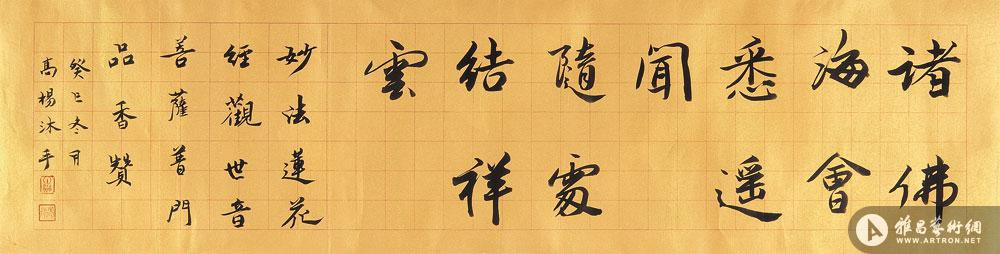 諸佛
海會
悉遥
聞
隨處
結祥
雲
妙法蓮花
經觀世音
菩薩普門
品香贊
癸巳冬月
高楊沐手
雅昌藝術網
WWW.ARTRON.NET